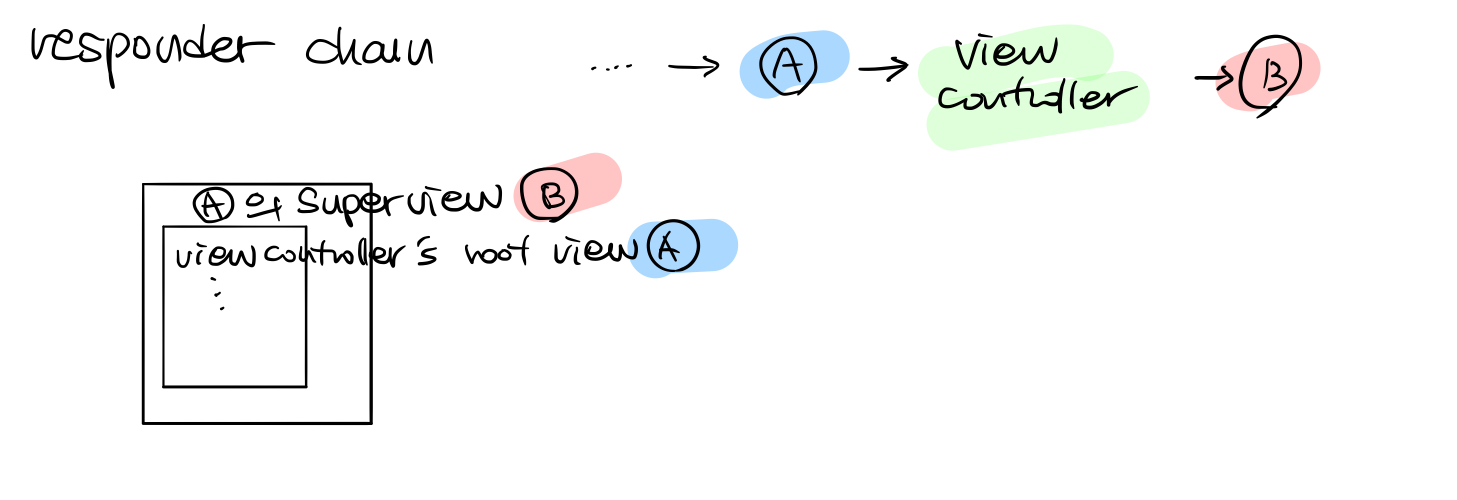 responder chain
.... → Ⓐ → view controller → Ⓑ
Ⓐ의 Superview Ⓑ
viewcontroller's root view Ⓐ
⋮